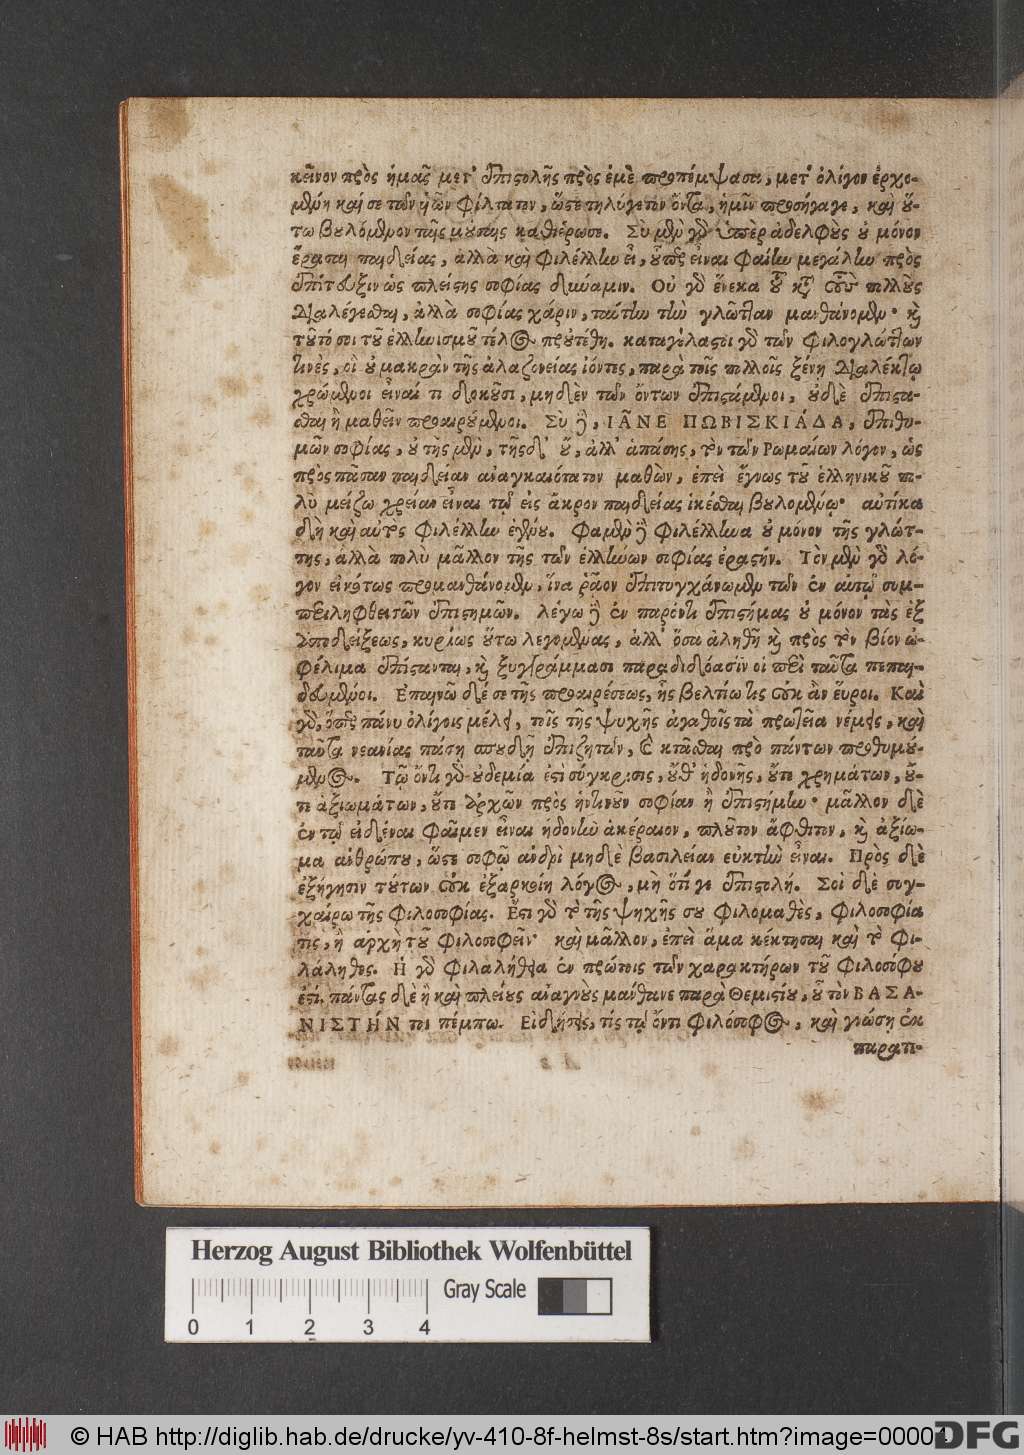 κεῖνον πρὸς ἡμᾶς μετ' ἐπιστολῆς πρὸς ἐμὲ προπέμψασα, μετ' ὀλίγον ἐρχο-
μένη καί σε τῶν ὑῶν φίλτατον, ὥστε τηλύγετον ὄντα, ἡμῖν προσήγαγε, καὶ οὕ-
τω βουλόμενον ταῖς μούσαις καθιέρωσε. Σὺ μὲν γὰρ ὑπὲρ ἀδελφοὺς οὐ μόνον
ἔρασαι παιδείας, ἀλλὰ καὶ φιλέλλην εἶ, οὗτος εἶναι φαίην μεγάλην πρὸς
ἐπίτευξιν ὡς πλείστης σοφίας δύναμιν. Οὐ γὰρ ἕνεκα τοῦ καὶ τοὺς πολλοὺς
διαλέγεσθαι, ἀλλὰ σοφίας χάριν, ταύτην τὴν γλῶτταν μανθάνομεν· καὶ
τοῦτό σοι τοῦ ἑλληνισμοῦ τέλος προὐτέθη. καταγέλαστοι γὰρ τῶν φιλογλώττων
τινὲς, οἳ οὐ μακρὰν τῆς ἀλαζονείας ἰόντες, παρὰ τοῖς πολλοῖς ξένῃ διαλέκτῳ
χρώμενοι εἶναί τι δοκοῦσι, μηδὲν τῶν ὄντων ἐπιστάμενοι, οὐδὲ ἐπίστα-
σθαι ἢ μαθεῖν προαιρούμενοι. Σὺ δὲ, ΙΑ͂ΝΕ ΠΩΒΙΣΚΙΆΔΑ, ἐπιθυ-
μῶν σοφίας, οὐ τῆς μὲν, τῆς δ' οὔ, ἀλλ' ἁπάσης, τὸν τῶν Ρωμαίων λόγον, ὡς
πρὸς πᾶσαν παιδείαν ἀναγκαιότατον μαθὼν, ἐπεὶ ἔγνως τοῦ ἑλληνικοῦ πο-
λὺ μείζω χρείαν εἶναι τῷ εἰς ἄκρον παιδείας ἱκέσθαι βουλομένῳ· αὐτίκα
δὴ καὶ αὐτὸς φιλέλλην ἐγένου. Φαμὲν δὲ φιλέλληνα οὐ μόνον τῆς γλώτ-
της, ἀλλὰ πολὺ μᾶλλον τῆς τῶν ἑλλήνων σοφίας ἐραστήν. Τὸν μὲν γὰρ λό-
γον εἰκότως προμανθάνομεν, ἵνα ῥᾷον ἐπιτυγχάνωμεν τῶν ἐν αὐτῷ συμ-
περιληφθεισῶν ἐπιστημῶν. λέγω δὲ ἐν παρόντι ἐπιστήμας οὐ μόνον τὰς ἐξ
ἀποδείξεως, κυρίως οὕτω λεγομένας, ἀλλ' ὅσα ἀληθῆ καὶ πρὸς τὸν βίον ὠ-
φέλιμα ἐπίστανται, καὶ ξυγγράμμασι παραδιδόασιν οἱ περὶ ταῦτα πεπαι-
δευμένοι. Επαινῶ δέ σε τῆς προαιρέσεως, ἧς βελτίω τις οὐκ ἂν εὕροι. Καὶ
γὰρ, ὅπερ πάνυ ὀλίγοις μέλει, τοῖς τῆς ψυχῆς ἀγαθοῖς τὰ πρωτεῖα νέμεις, καὶ
ταῦτα νεανίας πάσῃ σπουδῇ ἐπιζητῶν, καὶ κτᾶσθαι πρὸ πάντων προθυμού-
μενος. Τῷ ὄντι γὰρ οὐδεμία ἐστὶ σύγκρισις, οὔθ' ἡδονῆς, οὔτε χρημάτων, οὔ-
τε ἀξιωμάτων, οὔτε ἀρχῶν πρὸς ἡντινοῦν σοφίαν ἢ ἐπιστήμην· μᾶλλον δὲ
ἐν τῷ εἰδέναι φαῖμεν εἶναι ἡδονὴν ἀκέραιον, πλοῦτον ἄφθιτον, καὶ ἀξίω-
μα ἀνθρώπου, ὥστε σοφῷ ἀνδρὶ μηδὲ βασιλείαν εὐκτὴν εἶναι. Πρὸς δὲ
ἐξήγησιν τούτων οὐκ ἐξαρκοίη λόγος, μὴ ὅτι γε ἐπιστολή. Σοὶ δὲ συγ-
χαίρω τῆς φιλοσοφίας. Εστι γὰρ τὸ τῆς ψηχῆς σου φιλομαθὲς, φιλοσοφία
τις, ἢ ἀρχὴ τοῦ φιλοσοφεῖν· καὶ μᾶλλον, ἐπεὶ ἅμα κέκτησαι καὶ τὸ φι-
λάληθες. Η γὰρ φιλαλήθεια ἐν πρώτοις τῶν χαρακτήρων τοῦ φιλοσόφου
ἐστί. πάντας δὲ ἢ καὶ πλείους ἀναγνοὺς μάνθανε παρὰ Θεμιστίου, οὗ τὸν ΒΑΣΑ-
ΝΙΣΤΉΝ τοι πέμπω. Εἰδήσεις, τίς τῷ ὄντι φιλόσοφος, καὶ γνώσῃ ἐκ
παρατι-
Herzog August Bibliothek Wolfenbüttel
Gray Scale
0 1 2 3 4
© HAB http://diglib.hab.de/drucke/yv-410-8f-helmst-8s/start.htm?image=00004
DFG